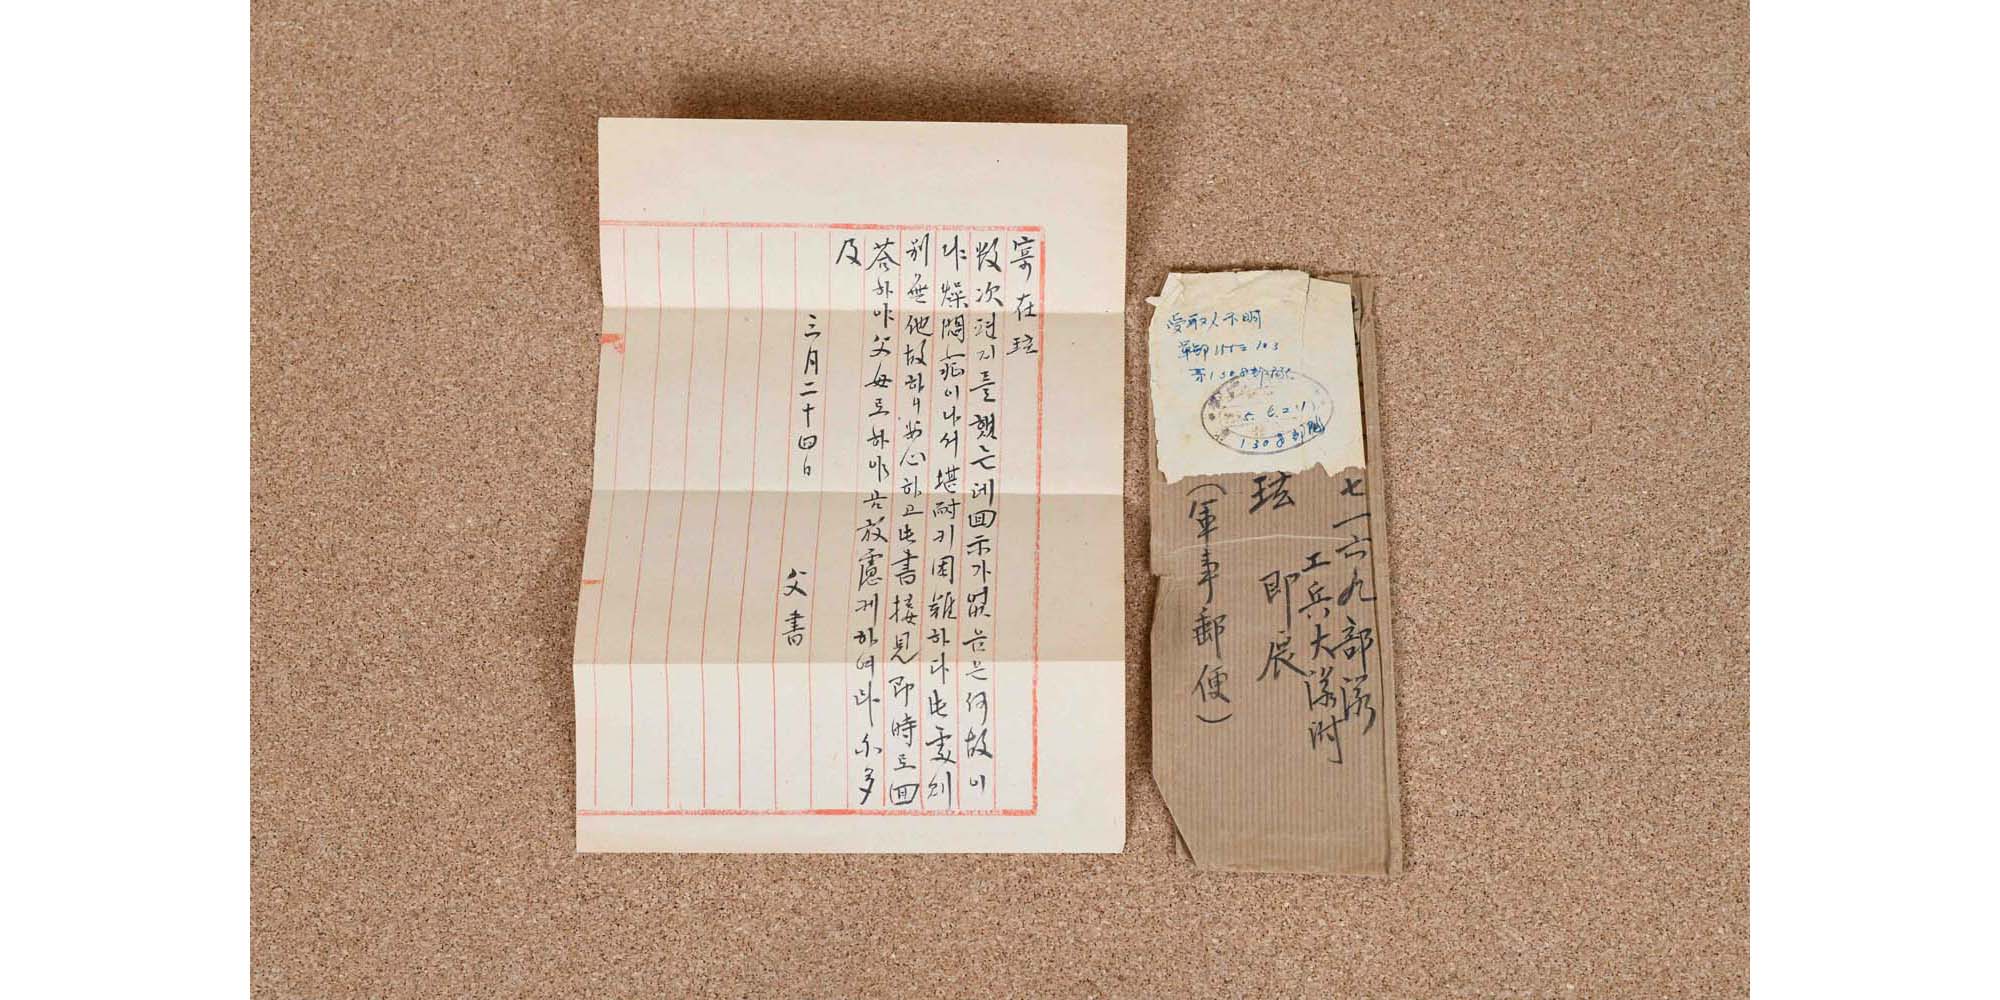 寄在玹
數次편지를했는데回示가없음은何故이
냐燥悶症이나서堪耐키困難하다此處난
別無他故하니安心하고此書接見卽時로回
答하야父母로하야금放慮케하여다不多
及
三月二十四日
父書
受取人不明
第130号部隊
5.6.21
130号部隊
七一六九部隊
工兵大隊附
玹 即展
(軍事郵便)